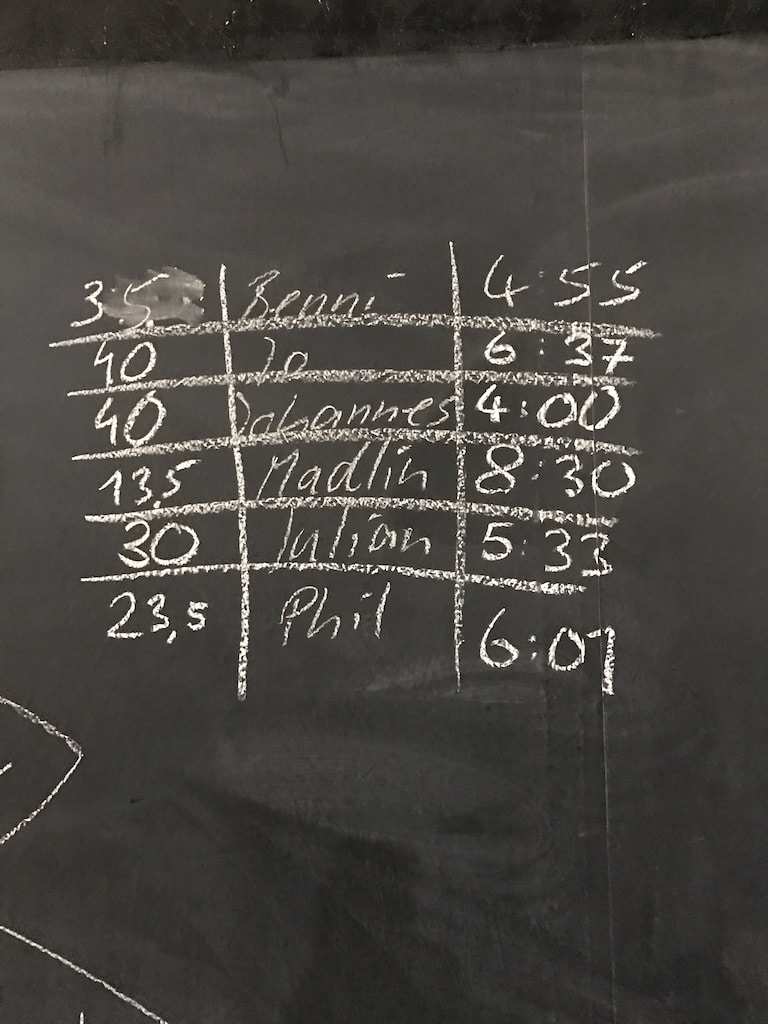 35 Benni 4:55
40 Jo 6:37
40 Johannes 4:00
13,5 Madlin 8:30
30 Julian 5:33
23,5 Phil 6:01